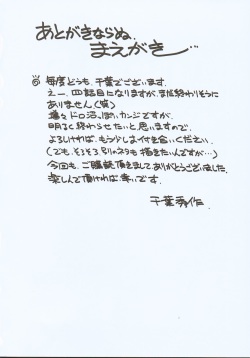 あとがきならぬ、
まえがき…
◎毎度どうも、千葉でございます。
えー、四話目になりますが、まだ終わりそうに
ありません(笑)
ドロ沼っぽいカンジですが、
明るく終わらせたいと思いますので、
よろしければ、もう少しお付き合いください。
(でも、そろそろ別のネタも描きたいんですが…)
今回も、ご購読頂きまして、ありがとうございました。
楽しんで頂ければ幸いです。
千葉秀作